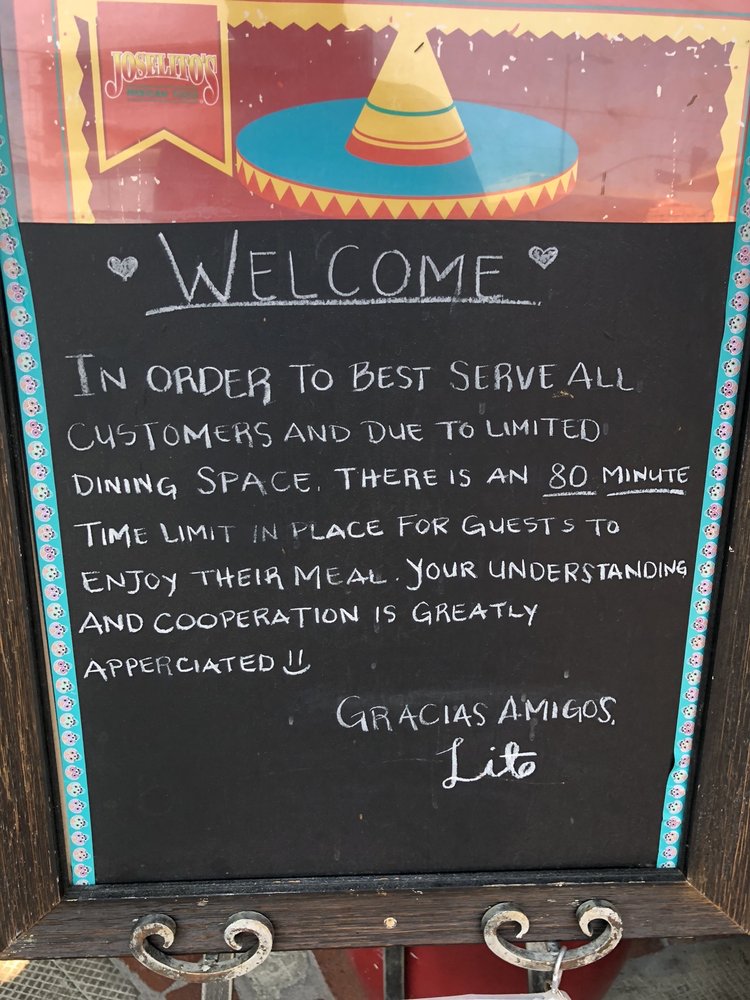 JOSELITO'S
MEXICAN FOOD
♥ WELCOME ♥
IN ORDER TO BEST SERVE ALL
CUSTOMERS AND DUE TO LIMITED
DINING SPACE. THERE IS AN 80 MINUTE
TIME LIMIT IN PLACE FOR GUESTS TO
ENJOY THEIR MEAL. YOUR UNDERSTANDING
AND COOPERATION IS GREATLY
APPERCIATED
GRACIAS AMIGOS,
Lito